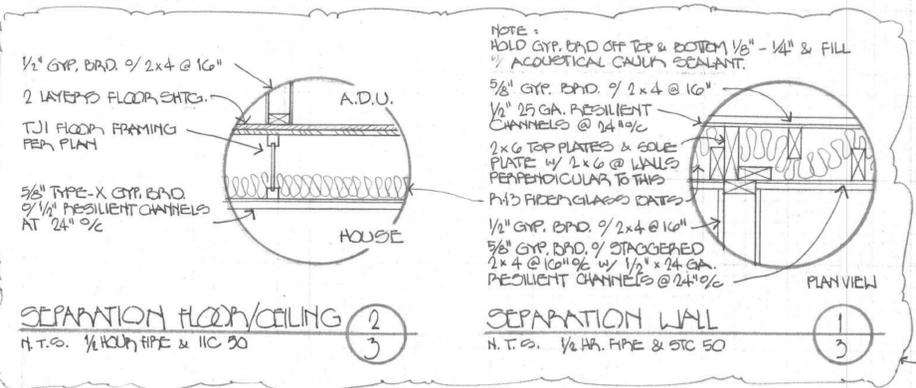 1/2" GYP. BRD. O/ 2x4 @ 16"
2 LAYERS FLOOR SHTG.
TJI FLOOR FRAMING
PER PLAN
5/8" TYPE-X GYP. BRD.
O/ 1/2" RESILIENT CHANNELS
AT 24" O/C
A.D.U.
HOUSE
SEPARATION FLOOR/CEILING
N.T.S. 1/2 HOUR FIRE & IIC 50
2
3
NOTE:
HOLD GYP. BRD OFF TOP & BOTTOM 1/8" - 1/4" & FILL
W/ ACOUSTICAL CAULK SEALANT.
5/8" GYP. BRD. O/ 2x4 @ 16"
1/2" 25 GA. RESILIENT
CHANNELS @ 24" O/C
2x6 TOP PLATES & SOLE
PLATE W/ 2x6 @ WALLS
PERPENDICULAR TO THIS
R-13 FIBERGLASS BATTS
1/2" GYP. BRD. O/ 2x4 @ 16"
5/8" GYP. BRD. O/ STAGGERED
2x4 @ 16" O/C W/ 1/2" x 24 GA.
RESILIENT CHANNELS @ 24" O/C
PLAN VIEW
SEPARATION WALL
N.T.S. 1/2 HR. FIRE & STC 50
1
3